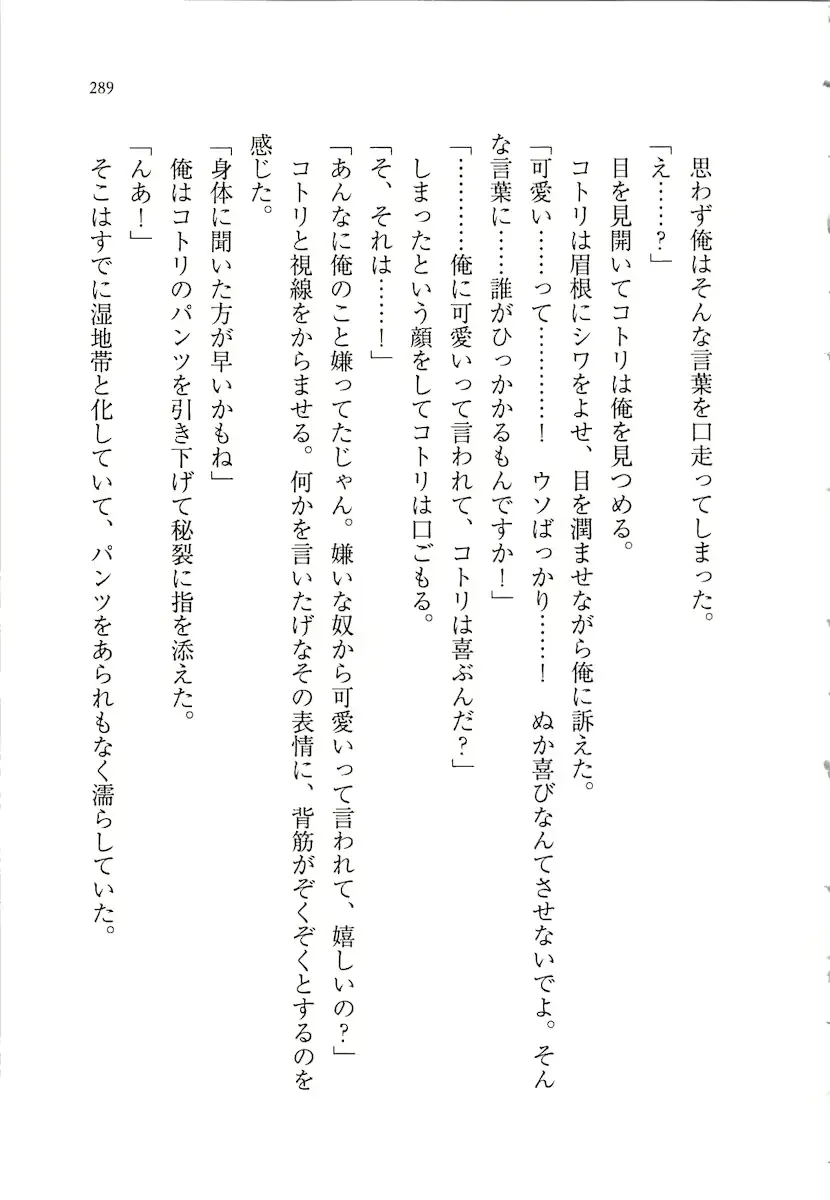 289
思わず俺はそんな言葉を口走ってしまった。
「え……？」
目を見開いてコトリは俺を見つめる。
コトリは眉根にシワをよせ、目を潤ませながら俺に訴えた。
「可愛い……って…………！　ウソばっかり……！　ぬか喜びなんてさせないでよ。そん
な言葉に……誰がひっかかるもんですか！」
「…………俺に可愛いって言われて、コトリは喜ぶんだ？」
しまったという顔をしてコトリは口ごもる。
「そ、それは……！」
「あんなに俺のこと嫌ってたじゃん。嫌いな奴から可愛いって言われて、嬉しいの？」
コトリと視線をからませる。何かを言いたげなその表情に、背筋がぞくぞくとするのを
感じた。
「身体に聞いた方が早いかもね」
俺はコトリのパンツを引き下げて秘裂に指を添えた。
「んあ！」
そこはすでに湿地帯と化していて、パンツをあられもなく濡らしていた。